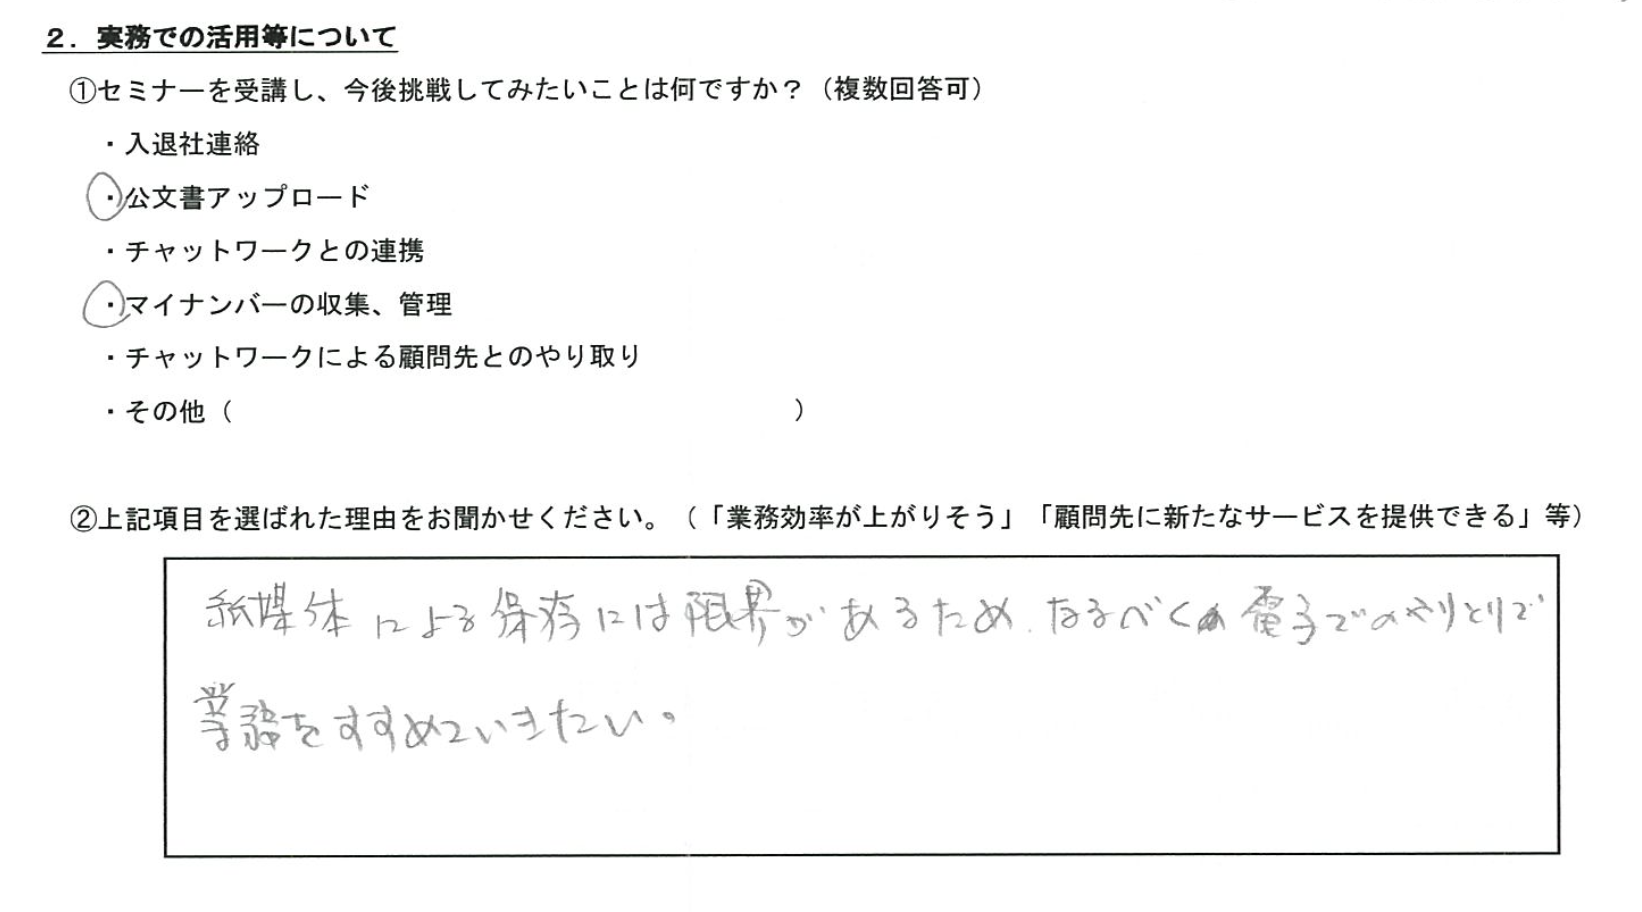 ２．実務での活用等について
①セミナーを受講し、今後挑戦してみたいことは何ですか？（複数回答可）
・入退社連絡
・公文書アップロード
・チャットワークとの連携
・マイナンバーの収集、管理
・チャットワークによる顧問先とのやり取り
・その他（　　　　　　　　　　　　　　　　　　　　）
②上記項目を選ばれた理由をお聞かせください。（「業務効率が上がりそう」「顧問先に新たなサービスを提供できる」等）
紙媒体による保存には限界があるため、なるべく電子でのやりとりで
業務をすすめていきたい。